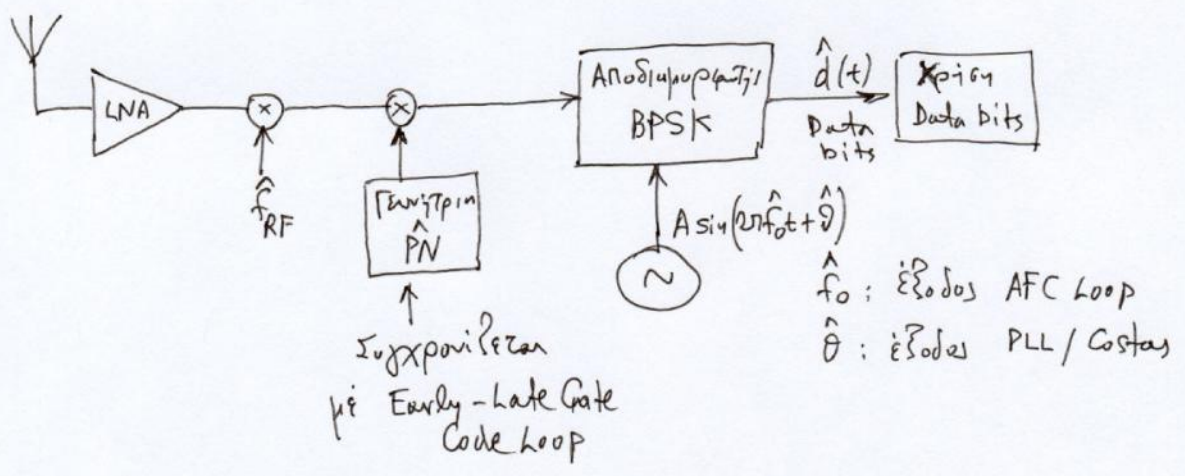 LNA
×
f̂RF
×
Γεννήτρια
P̂N
Συγχρονίζεται
με Early-Late Gate
Code Loop
Αποδιαμορφωτής
BPSK
A sin(2πf̂₀t+θ̂)
~
d̂(t)
Data
bits
Χρήση
Data bits
f̂₀ : έξοδος AFC Loop
θ̂ : έξοδος PLL / Costas